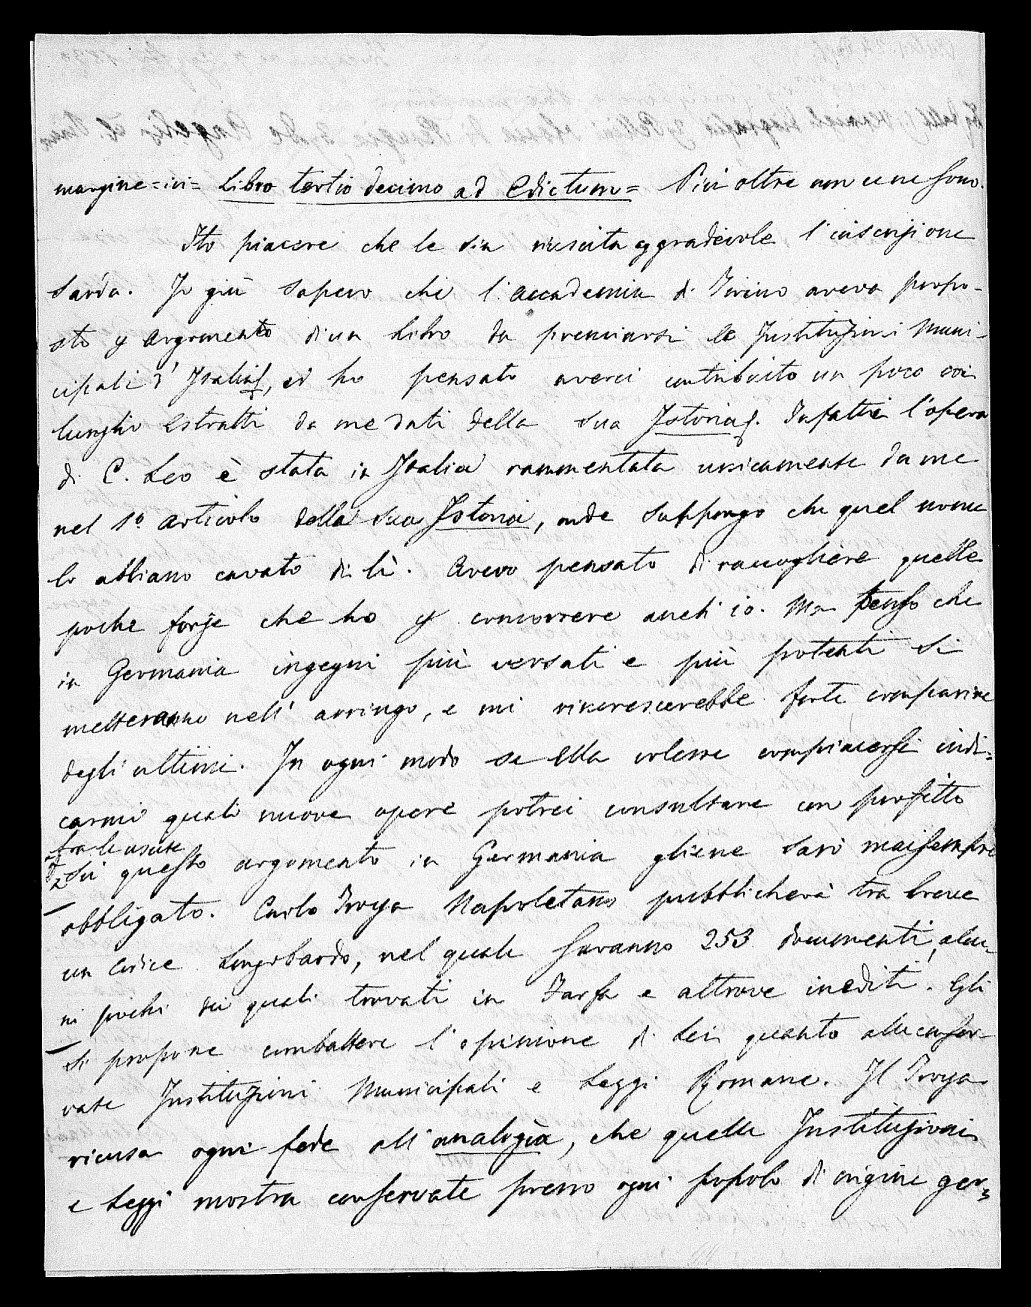 margine = ivi = Libro tertio decimo ad Edictum = Più oltre non ce ne sono.
Ho piacere che le sia riuscita aggradevole l'inscrizione
Sarda. Io già sapevo che l'Accademia di Torino aveva propo-
sto p argomento di un Libro da premiarsi le Instituzioni Muni-
cipali d'Italia, ed ho pensato averci contribuito un poco coi
lunghi Estratti da me dati della sua Istoria. Infatti l'opera
di C. Leo è stata in Italia rammentata unicamente da me
nel 1º articolo della sua Istoria, onde suppongo che quel nome
lo abbiano cavato di lì. Avevo pensato di raccogliere quelle
poche forze che ho p concorrere anch'io. Ma penso che
in Germania ingegni più versati e più potenti si
metteranno nell'arringo, e mi rincrescerebbe forte comparire
degli ultimi. In ogni modo se Ella volesse compiacersi indi-
carmi quali nuove opere potrei consultare con profitto
tra le uscite
su questo argomento in Germania gliene sarò maisempre
obbligato. Carlo Troya Napoletano pubblicherà tra breve
un Codice Longobardo, nel quale saranno 253 documenti, alcu-
ni pochi dei quali trovati in Farfa e altrove inediti. Egli
si propone combattere l'opinione di Lei quanto alle conser-
vate Instituzioni Municipali e Leggi Romane. Il Troya
ricusa ogni fede all'analogia, che quelle Instituzioni
e Leggi mostra conservate presso ogni popolo di origine ger=